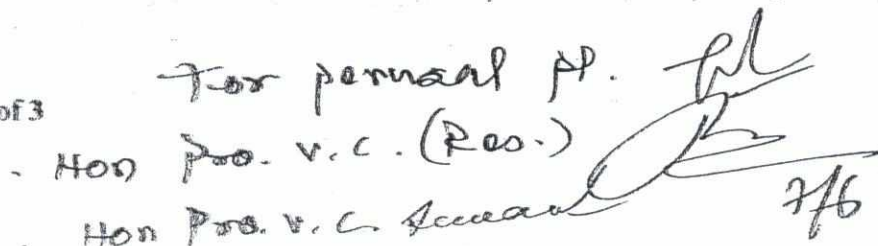 For perusal pl.
of 3
- Hon Pro. V.C. (Res.)
. Hon Pro. V.C.
7/6